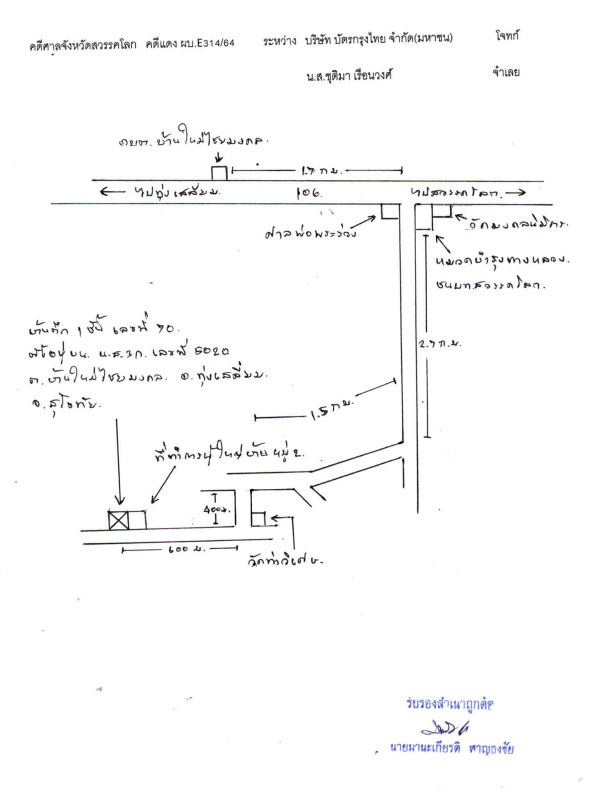 คดีศาลจังหวัดสวรรคโลก คดีแดง ผบ.E314/64 ระหว่าง บริษัท บัตรกรุงไทย จำกัด(มหาชน) โจทก์
น.ส.ชุติมา เรือนวงศ์ จำเลย
อบต. บ้านใหม่ไชยมงคล.
1.7 ก.ม.
ไปทุ่งเสลี่ยม 106. ไปสวรรคโลก
ศาลพ่อพระร่วง
วัดมงคลนิมิตร.
หมวดบำรุงทางหลวง.
ชนบทสวรรคโลก.
2.7 ก.ม.
บ้านตึก 1 ชั้น เลขที่ 70.
ตั้งอยู่บน น.ส.3ก. เลขที่ 5020
ต.บ้านใหม่ไชยมงคล. อ.ทุ่งเสลี่ยม.
จ.สุโขทัย.
1.5 ก.ม.
ที่ทำการผู้ใหญ่บ้าน หมู่ 2.
400 ม.
600 ม.
วัดท่าวิเศษ.
รับรองสำเนาถูกต้อง
นายมานะเกียรติ หาญธงชัย